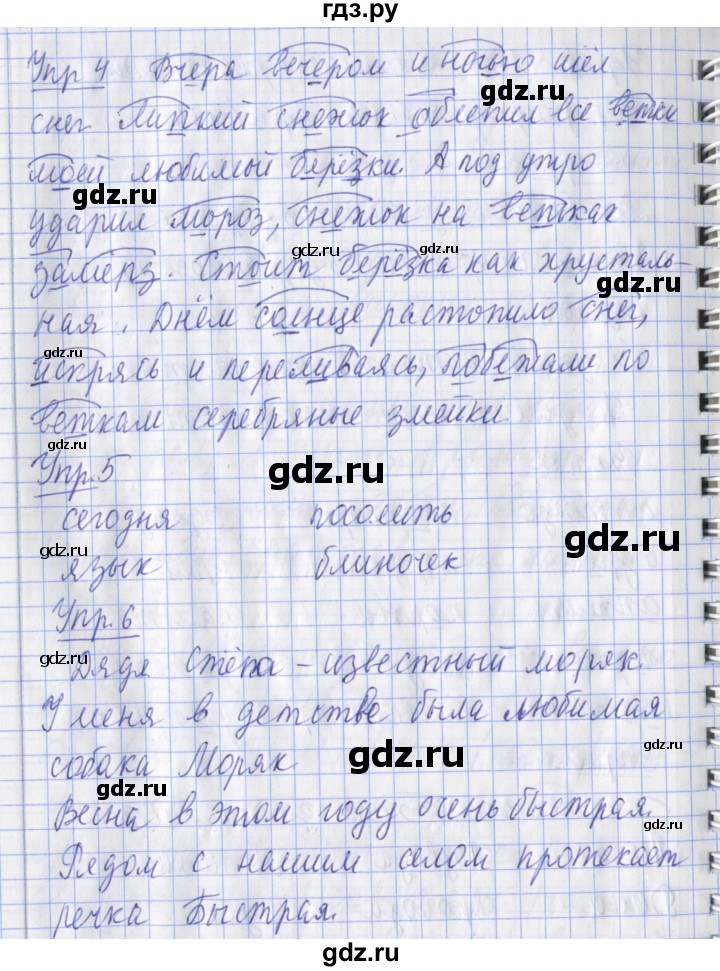 гдз.ру
Упр 4 Вчера вечером и ночью шёл
gdz.ru
снег Липкий снежок облепил все ветки
моей любимый берёзки. А под утро
gdz.ru
ударил мороз, снежок на ветках
gdz.ru gdz.ru
замёрз. Стоит берёзка как хрусталь-
gdz.ru
ная. Днём солнце растопило снег,
искрясь и переливаясь, побежали по
gdz.ru
веткам серебряные змейки.
gdz.ru
Упр.5
gdz.ru
сегодня посолить
gdz.ru
gdz.ru
язык блиночек
Упр.6
gdz.ru
Дядя Стёпа – известный моряк.
У меня в детстве была любимая
gdz.ru
собака Моряк
gdz.ru
Весна в этом году очень быстрая.
gdz.ru
Рядом с нашим селом протекает
gdz.ru
речка Быстрая.
gdz.ru